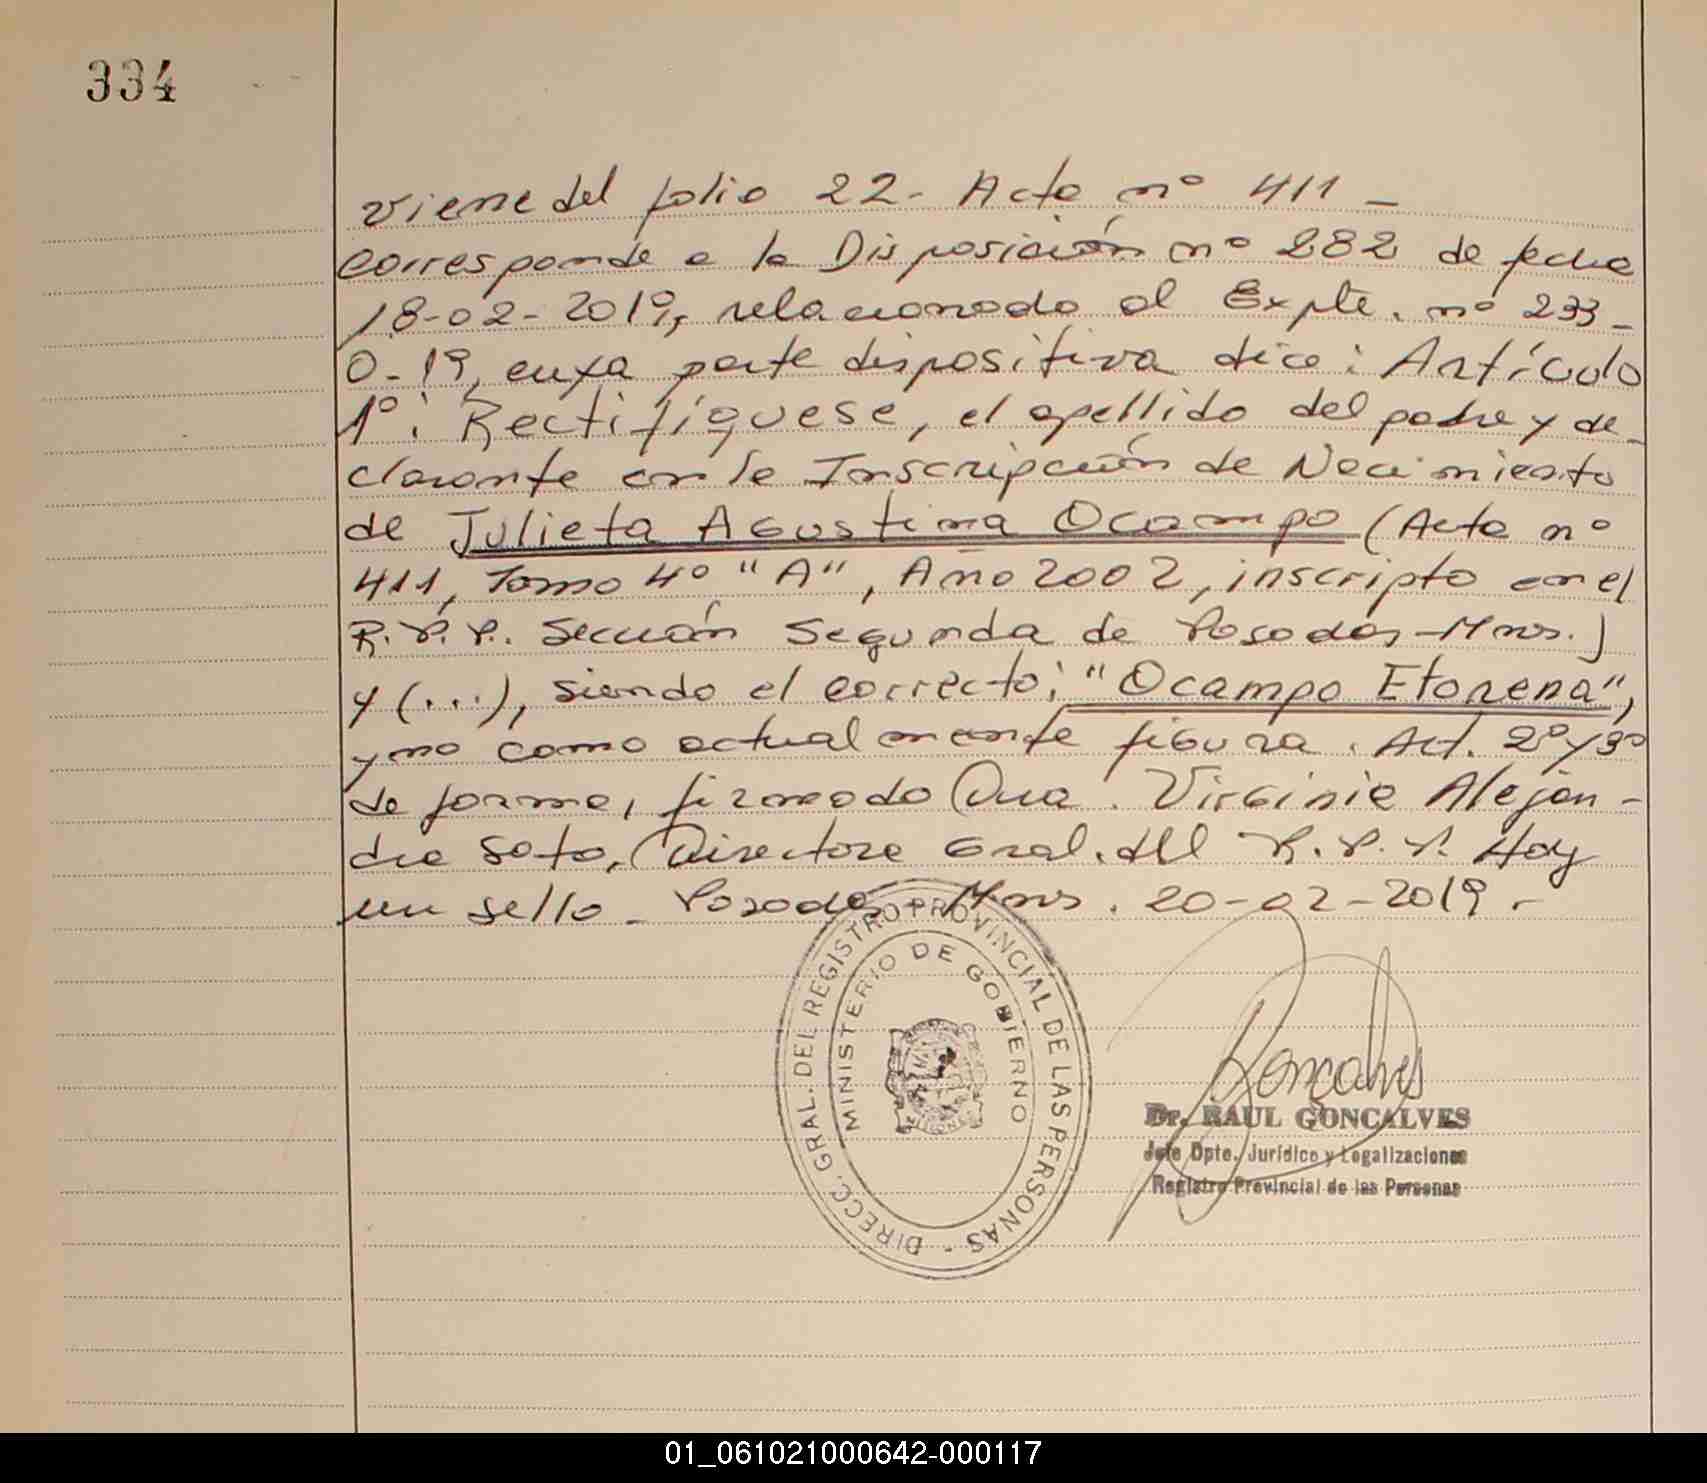 334
Viene del folio 22- Acta nº 411 -
corresponde a la Disposición nº 282 de fecha
18-02-2019, relacionado al Expte. nº 233-
0-19, cuya parte dispositiva dice: Artículo
1º: Rectifíquese, el apellido del padre y de-
clarante en la Inscripción de Nacimiento
de Julieta Agustina Ocampo (Acta nº
411, Tomo 4º "A", Año 2002, inscripto en el
R.P.P. Sección Segunda de Posadas-Mnes.)
y (...), siendo el correcto: "Ocampo Etorena",
y no como actualmente figura. Art. 2º y 3º
de forma, firmado Dra. Virginia Alejan-
dra Soto, Directora Gral. del R.P.P. Hay
un sello - Posadas Mnes. 20-02-2019 -
DIRECC. GRAL. DEL REGISTRO PROVINCIAL DE LAS PERSONAS -
MINISTERIO DE GOBIERNO
MISIONES
Goncalves
Dr. RAUL GONCALVES
Jefe Dpto. Jurídico y Legalizaciones
Registro Provincial de las Personas
01_061021000642-000117